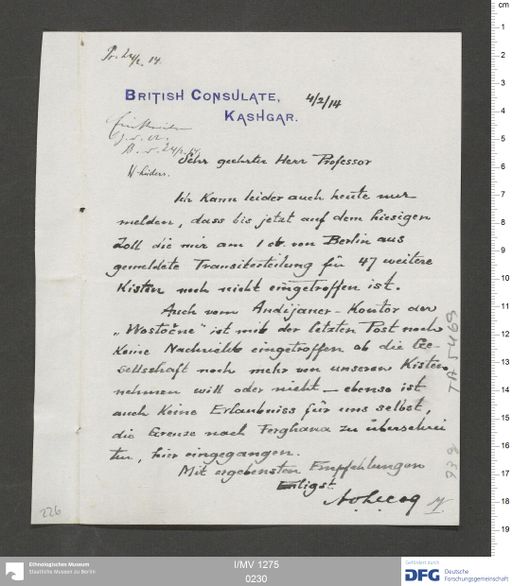 Pr. 24/2. 14.
BRITISH CONSULATE,
KASHGAR.
4/2/14
B. v. 24/2. 14.
Sehr geehrter Herr Professor
Ich kann leider auch heute nur
melden, dass bis jetzt auf dem hiesigen
Zoll die mir am 1 ds. von Berlin aus
gemeldete Transiterteilung für 47 weitere
Kisten noch nicht eingetroffen ist.
Auch vom Andijaner-Kontor der
„Wostočne" ist mit der letzten Post noch
keine Nachricht eingetroffen ob die Ge-
sellschaft noch mehr von unseren Kisten
nehmen will oder nicht — ebenso ist
auch keine Erlaubniss für uns selbst,
die Grenze nach Ferghana zu überschrei
ten, hier eingegangen.
Mit ergebensten Empfehlungen
TA 5469
226
Ethnologisches Museum
Staatliche Museen zu Berlin
I/MV 1275
0230
Gefördert durch
DFG Deutsche
Forschungsgemeinschaft
cm
1
2
3
4
5
6
7
8
9
10
11
12
13
14
15
16
17
18
19